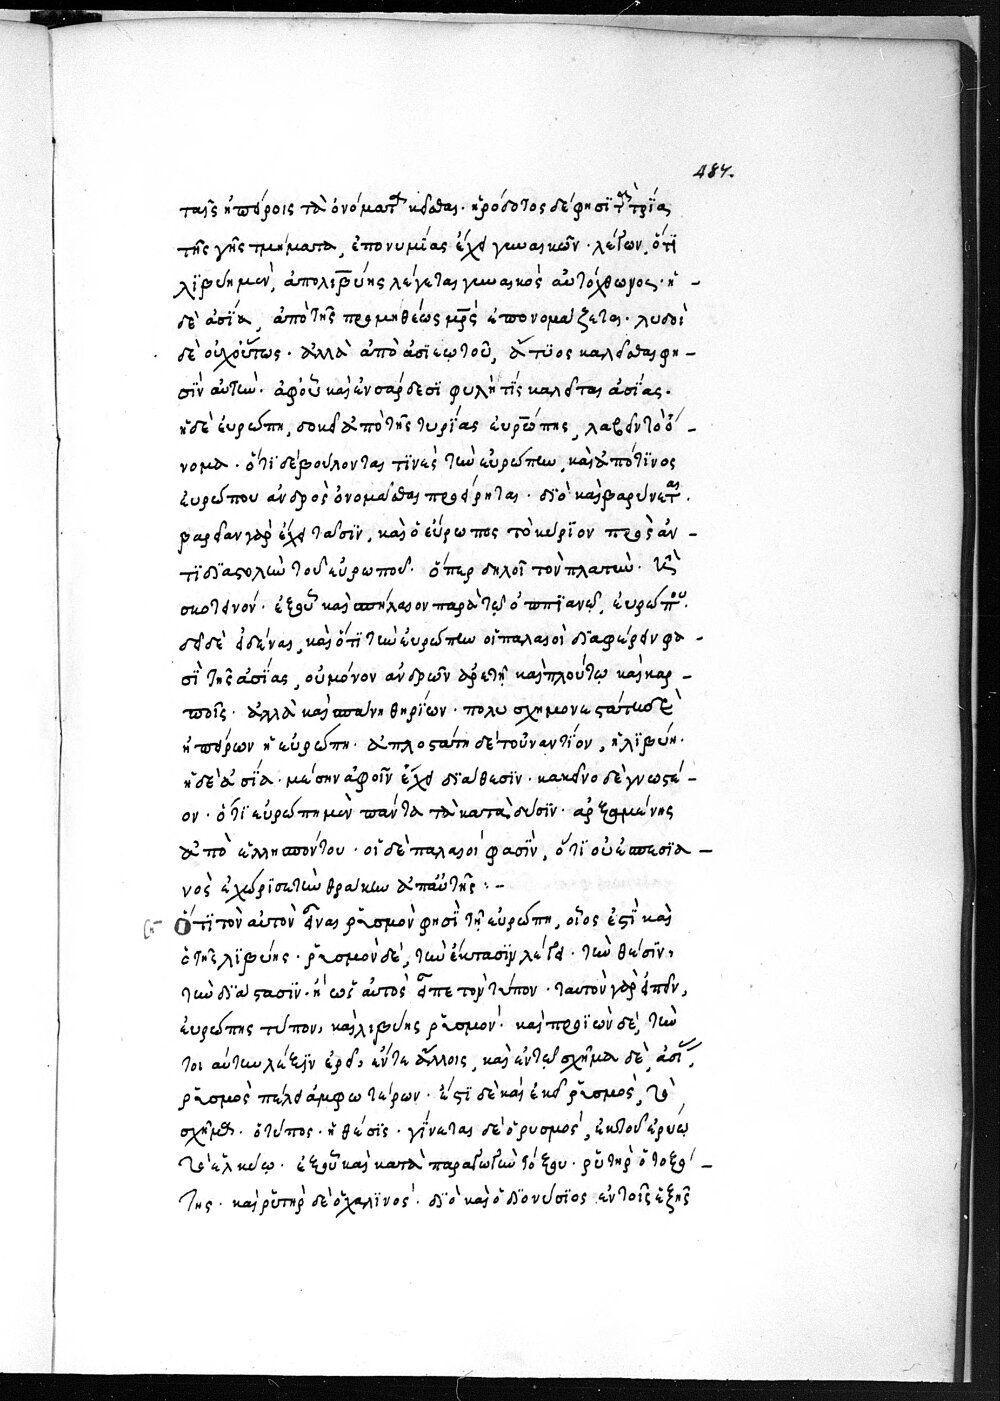 487.
ταῖς ἠπείροις τὰ ὀνόματα κεῖσθαι· ἡρόδοτος δέ φησϊ τὰ τρία
τῆς γῆς τμήματα, ἐπονυμίας ἔχει γυναικῶν· λέγων, ὅτι
λϊβύη μὲν, ἀπὸ λιβύης λέγεται γυναικὸς αὐτόχθωνος· ἡ –
δὲ ἀσία, ἀπὸ τῆς προμηθέως μητρὸς ἐπονομάζεται· λυδοὶ
δὲ οὐχ οὕτως· ἀλλὰ ἀπὸ ἀσίεω τοῦ, κα φη –
σϊν αὐτὴν· ἀφ' οὗ καὶ ἐν σάρδεσϊ φυλή τϊς καλεῖται ἀσίας·
ἡ δὲ εὐρώπη, δοκεῖ ἀπὸ τῆς τυρίας εὐρώπης, λαβεῖν τὸ ὄ –
νομα· ὅτϊ δὲ βούλονταί τϊνες τὴν εὐρώπην, καὶ ἀπό τϊνος
εὐρώπου ἀνδρὸς ὀνομάσθαι προείρηται· διὸ καὶ βαρύνεται·
βαρεῖαν γὰρ ἔχει τάσϊν, καὶ ὁ εὔρωπος τὸ κύρϊον πρὸς ἀν –
τϊδϊαστολὴν τοῦ εὐρωποῦ· ὅπερ δηλοῖ τὸν πλατὺν· καὶ
σκοτεινόν· ἐξ οὗ καὶ σπήλαιον παρὰ τῷ ὀππϊανῷ, εὐρωποῦ·
δεῖ δὲ εἰδέναι, καὶ ὅτϊ τὴν εὐρώπην οἱ παλαιοὶ διαφέρειν φα –
σὶ τῆς ἀσίας, οὐ μόνον ἀνδρῶν ἀρετῇ καὶ πλούτῳ καὶ καρ –
ποῖς· ἀλλὰ καὶ σπάνῃ θηρίων· πολυσχημονωτάτη δὲ
ἠπείρων ἡ εὐρώπη· ἁπλοστάτη δὲ τοὐναντίον, ἡ λϊβύη·
ἡ δὲ ἀσία· μέσην ἀμφοῖν ἔχει διάθεσιν· κἀκεῖνο δὲ γνωστέ –
ον· ὅτϊ εὐρώπη μὲν πάντα τὰ κατὰ δύσϊν· ἀρξαμένης
ἀπὸ ἑλλησπόντου· οἱ δὲ παλαιοί φασϊν, ὅτϊ οὐέσπεσϊα –
νὸς ἐχώρισε τὴν θρᾴκην ἀπ' αὐτῆς: –
Ὅτϊ τὸν αὐτὸν εἶναι ῥυσμὸν φησϊ τῇ εὐρώπῃ, οἷος ἐστϊ καὶ
ὁ τῆς λϊβύης· ῥυσμὸν δὲ, τὴν ἔκτασϊν λέγει· τὴν θέσϊν,
τὴν διάστασϊν· ἢ ὡς αὐτὸς εἶπε τὸν τύπον· ταυτὸν γὰρ εἰπεῖν,
εὐρώπης τύπον, καὶ λιβύης ῥυσμόν· καὶ προϊὼν δὲ, τὴν
τοιαύτην λέξϊν ἐρεῖ, ἔν τε ἄλλοις, καὶ ἐν τῷ σχῆμα δὲ ἀσίης
ῥυσμὸς πέλει ἀμφωτέρων· ἔστϊ δὲ καὶ ἐκεῖ ῥυσμὸς, τὸ
σχῆμα· ὁ τύπος· ἡ θέσϊς· γίνεται δὲ ὁ ῥυσμός, ἐκ τοῦ ἐρύω
τὸ ἕλκύω· ἐξ οὗ καὶ κατὰ παραγωγὴν τόξου· ῥυτὴρ ὁ τοξό –
της· καὶ ῥυτὴρ δὲ ὁ χαλϊνός· διὸ καὶ ὁ διονύσϊος ἐν τοῖς ἑξῆς